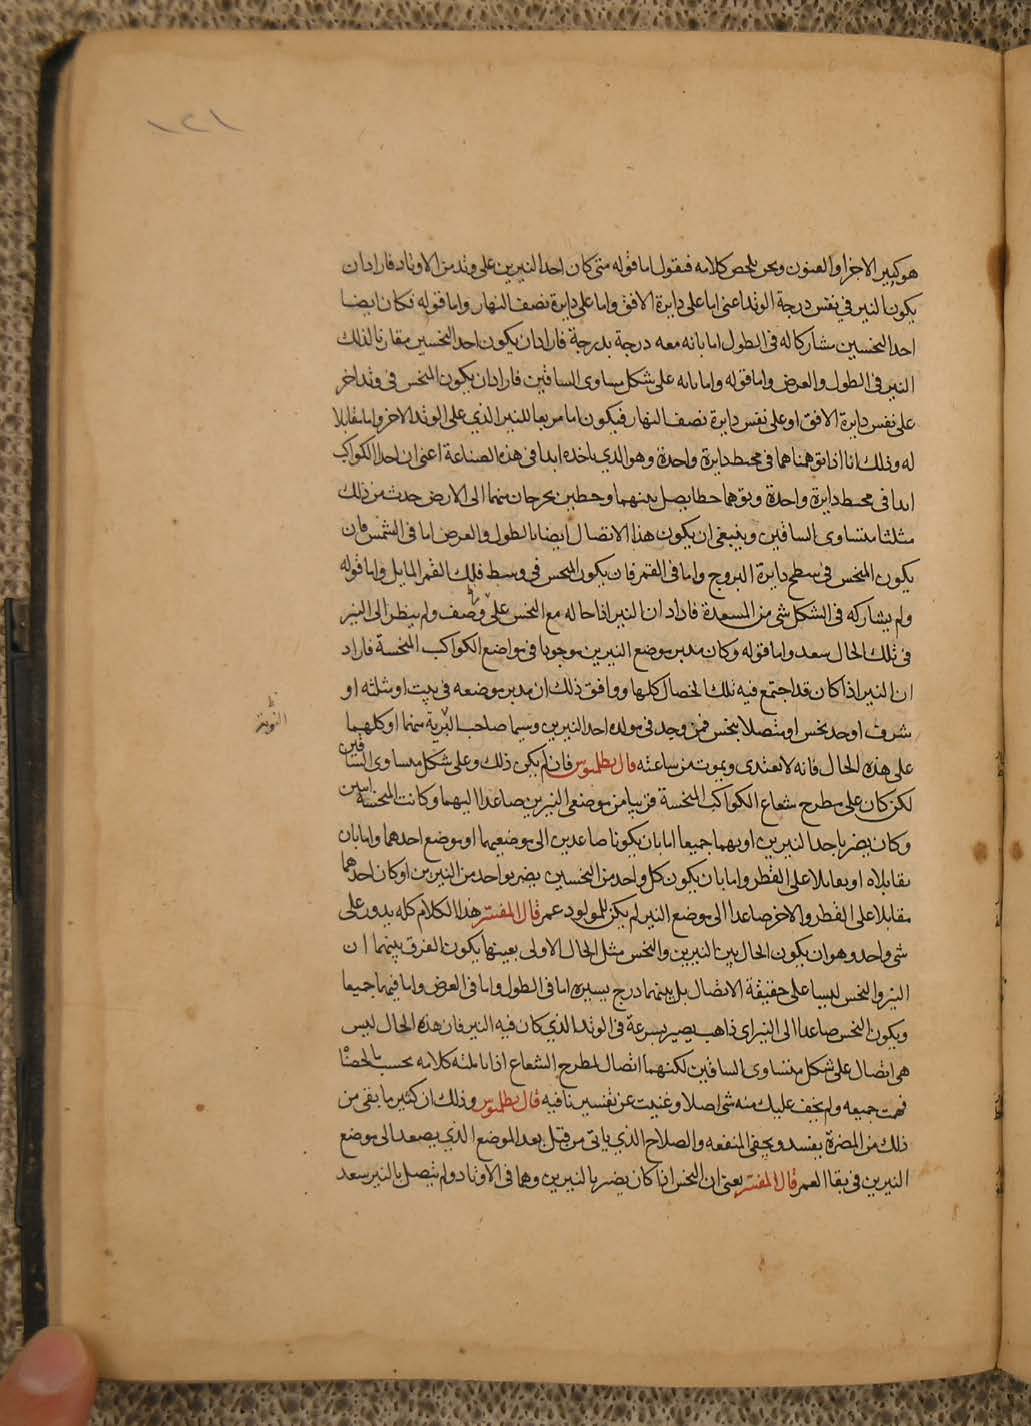 ١٢١
هو كبير الاجزا والعنون ونحن نلخص كلامه فنقول اما قوله متى كان احد النيرين على وتد من الاوتاد فاراد ان
يكون النير في نفس درجة الوتد اعنى اما على دايرة الافق واما على دايرة نصف النهار واما قوله فكان ايضا
احد النحسين مشاركا له فى الطول اما بانه معه درجة بدرجة فاراد ان يكون احد النحسين مقارنا لذلك
النير فى الطول والعرض واما قوله واما بانه على شكل مساوى الساقين فاراد ان يكون النحس فى وتد اخر
على نفس دايرة الافق او على نفس دايرة نصف النهار فيكون اما مربعا للنير الذي على الوتد الاخر واما مقابلا
له وذلك انا اذا توهمناهما فى محيط دايرة واحدة وهو الذي ياخذه ابدا فى هذه الصناعة اعنى ان احد الكواكب
ابدا فى محيط دايرة واحدة وتوهما خطا يصل بينهما وخطين يخرجان منهما الى الارض حدث من ذلك
مثلثا متساوى الساقين وينبغى ان يكون هذا الاتصال ايضا بالطول والعرض اما فى الشمس فان
يكون النحس فى سطح دايرة البروج واما فى القمر فان يكون النحس فى وسط فلك القمر المايل واما قوله
ولم يشاركه فى الشكل شى من المسعدة فاراد ان النير اذا حاله مع النحس على ما وصف ولم ينظر الى النير
فى تلك الحال سعد واما قوله وكان مدبر موضع النيرين موجودا فى مواضع الكواكب المنحسة فاراد
ان النير اذا كان قد اجتمع فيه تلك الخصال كلها ووافق ذلك ان مدبر موضعه فى بيت او مثلثه او
شرف او حد نحس او متصلا بنحس فمن وجد فى مولده احد النيرين وسيما صاحب النوبة منهما او كلهما
على هذه الحال فانه لا يغتدى ويموت من ساعته قال بطلميوس فان لم يكن ذلك وعلى شكل متساوى الساقين
لكن كان على مطرح شعاع الكواكب المنحسة قريبا من موضعى النيرين صاعدا اليهما وكانت المنحسة اثنين
وكان يضر باحد النيرين او بهما جميعا اما بان يكونا صاعدين الى موضعيهما او موضع احدهما واما بان
يقابلاه او يقابلا على القطر واما بان يكون كل واحد من النحسين يضر بواحد من النيرين او كان احدهما
مقابلا على القطر والاخر صاعدا الى موضع النير لم يكن للمولود عمر قال المفسر هذا الكلام كله يدور على
شى واحد وهو ان يكون الحال بين النيرين والنحس مثل الحال الاولى بعينها يكون الفرق بينهما ان
النير والنحس ليسا على حقيقة الاتصال بل بينهما درج يسيره اما فى الطول واما فى العرض واما فيهما جميعا
ويكون النحس صاعدا الى النير اى ذاهب يصير بسرعة فى الوتد الذى كان فيه النير فان هذه الحال ليس
هى اتصال على شكل متساوى الساقين لكنهما اتصال لمطرح الشعاع اذا تاملته كلامه بحسب ما لخصنا
فهمت جميعه ولم يخف عليك منه شى اصلا وغنيت عن تفسيرنا فيه قال بطلميوس وذلك ان كثير ما بقى من
ذلك من المضرة يفسد ويخفى المنفعه والصلاح الذى ياتى من قبل بعد الموضع الذي يصعد الى موضع
النيرين فى بقا العمر قال المفسر يعنى ان النحس اذا كان يضر بالنيرين وهما فى الاوتاد ولم يتصل بالنير سعد